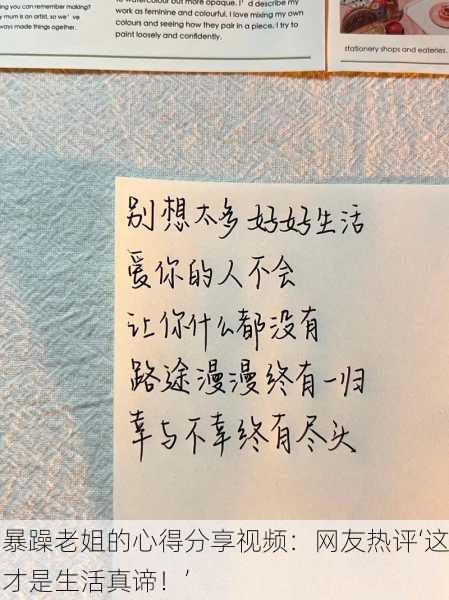 ing you can remember making?
y mum is an artist, so we've
ways made things together.
to watercolour but more opaque. I'd describe my
work as feminine and colourful. I love mixing my own
colours and seeing how they pair in a piece. I try to
paint loosely and confidently.
stationery shops and eateries.
别想太多好好生活
爱你的人不会
让你什么都没有
路途漫漫终有一归
幸与不幸终有尽头
暴躁老姐的心得分享视频：网友热评‘这
才是生活真谛！’